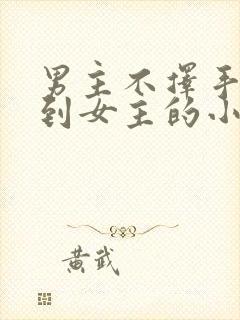 男主不择手
到女主的小
黄武